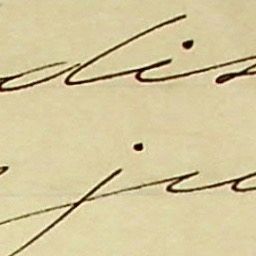 dis
ju